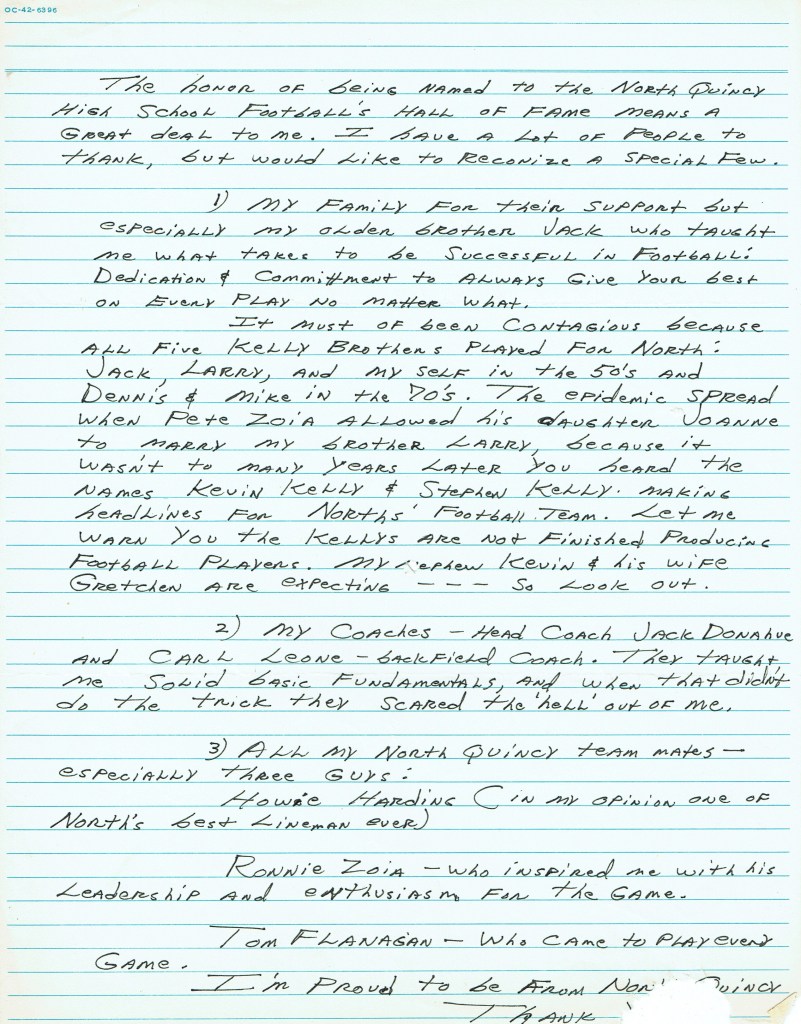 OC-42-6396
The honor of being named to the North Quincy
High School Football's Hall of Fame means a
Great deal to me. I have a lot of people to
thank, but would like to reconize a special few.
1) My family for their support but
especially my older brother Jack who taught
me what takes to be successful in football:
Dedication & Committment to always give your best
on every play no matter what.
It must of been contagious because
all five Kelly Brothers played for North:
Jack, Larry, and my self in the 50's and
Dennis & Mike in the 70's. The epidemic spread
when Pete Zoia allowed his daughter Joanne
to marry my brother Larry, because it
wasn't to many years later you heard the
names Kevin Kelly & Stephen Kelly. making
headlines for Norths' football team. Let me
warn you the Kellys are not finished producing
football players. My nephew Kevin & his wife
Gretchen are expecting --- So look out.
2) My Coaches - Head Coach Jack Donahue
and Carl Leone - backfield Coach. They taught
me solid basic fundamentals, and when that didn't
do the trick they scared the 'hell' out of me.
3) All my North Quincy team mates -
especially three guys:
Howie Harding (in my opinion one of
North's best lineman ever)
Ronnie Zoia - who inspired me with his
leadership and enthusiasm for the game.
Tom Flanagan - who came to play every
game.
I'm proud to be from North Quincy
Thank